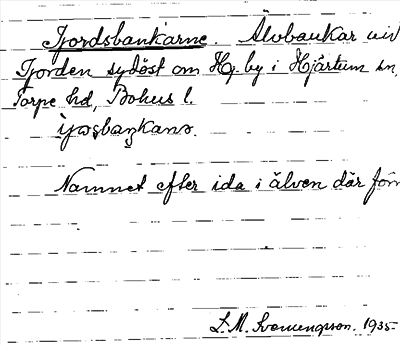 Tjordsbankarne. Älvbankar vid
Tjorden sydöst om Hg. by i Hjärtum sn,
Torpe hd, Bohus l.
Namnet efter ida i älven där förr
L. M. Svenungsson. 1935.